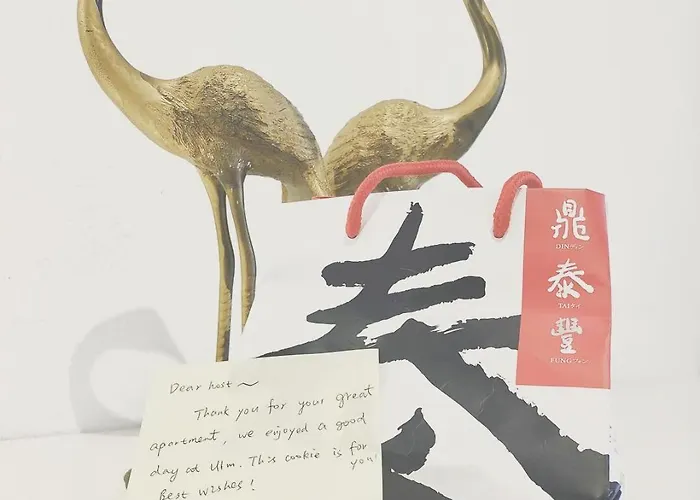 鼎
DINディン
泰
TAIタイ
豐
FUNGフォン
泰
Dear host ~
Thank you for your great
apartment, we enjoyed a good
day at Ulm. This cookie is for
you!
Best wishes!